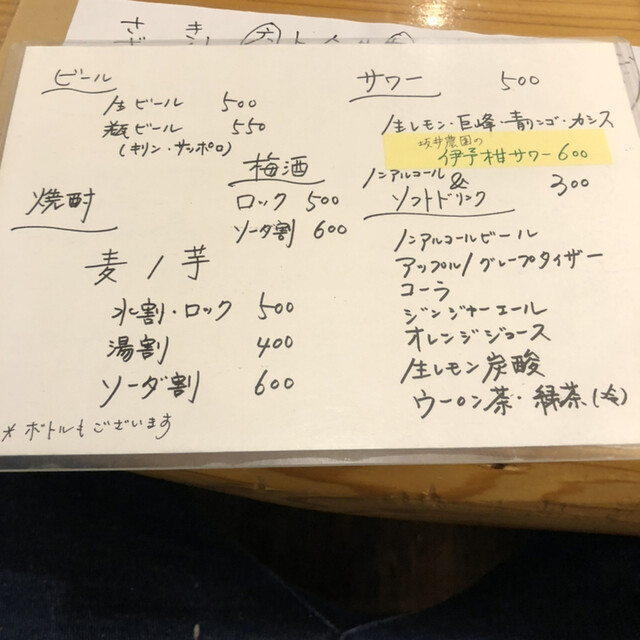 ビール
生ビール 500
瓶ビール 550
(キリン・サッポロ)
梅酒
ロック 500
ソーダ割 600
焼酎
麦 / 芋
水割・ロック 500
湯割 400
ソーダ割 600
* ボトルもございます
サワー 500
生レモン・巨峰・青リンゴ・カシス
坂井農園の
伊予柑サワー 600
ノンアルコール & 300
ソフトドリンク
ノンアルコールビール
アップル/グレープタイザー
コーラ
ジンジャーエール
オレンジジュース
生レモン炭酸
ウーロン茶・緑茶(冷)